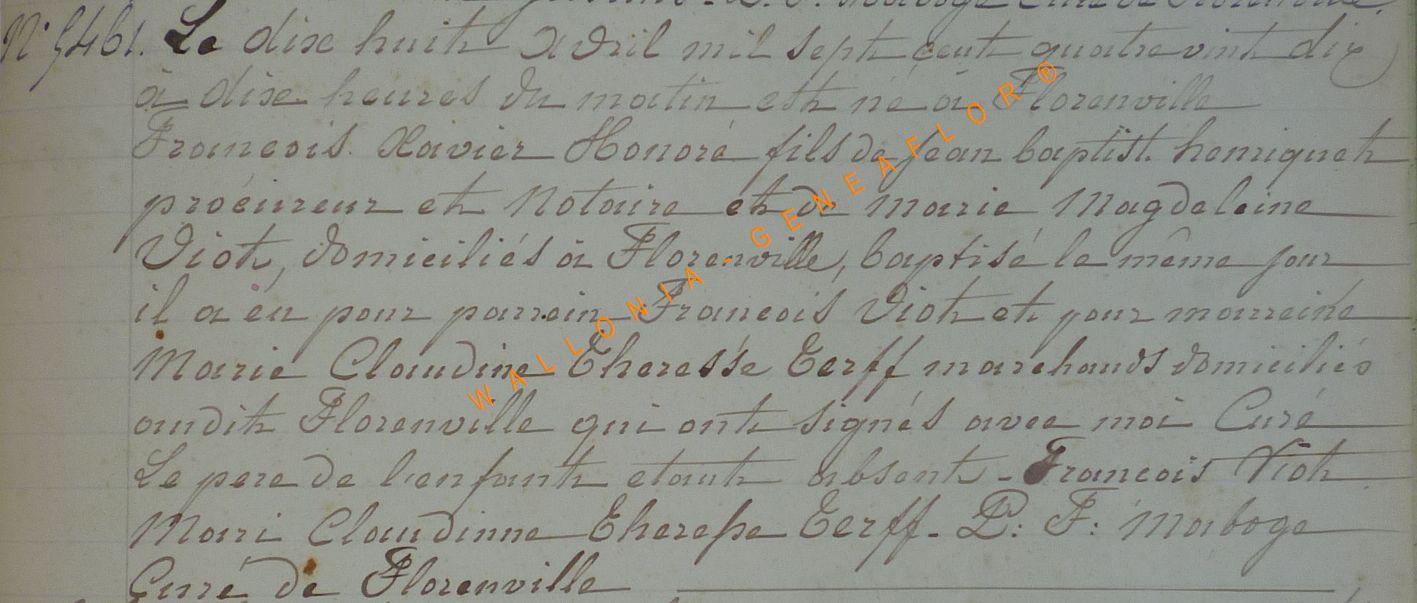 N° 5461. Le dix huit Avril mil sept cent quatre vint dix
à dix heures du matin est né à Florenville
Francois Xavier Honoré fils de Jean baptist. henriquet
procureur et Notaire et de marie Magdeleine
Viot, domiciliés à Florenville, baptisé le même jour
il a eu pour parrein Francois Viot et pour marreine
Marie Claudine Theresse Terff marchands domiciliés
audit Florenville qui ont signés avec moi Curé
Le pere de l'enfant etant absent - Francois Viot
Mari Claudinne Therese Terff - P: F: Maboge
Curé de Florenville
WALLONIA - GENEAFLOR ®